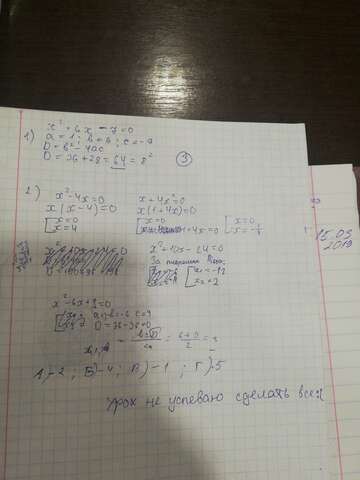 1) x² + 6x - 7 = 0
a = 1; b = 6; c = -7
D = b² - 4ac
D = 36 + 28 = 64 = 8²
3
2) x² - 4x = 0
x(x - 4) = 0
x = 0
x = 4
x + 4x² = 0
x(1 + 4x) = 0
x = 0
1 + 4x = 0
x = 0
15.05
2019
x² + 10x - 24 = 0
За теоремою Вієта:
x₁ = -12
x₂ = 2
x² - 6x + 9 = 0
a = 1 b = -6 c = 9
D = 36 - 36 = 0
2a
= 3
А) - 2 ; Б) - 4 ; В) - 1 ; Г) - 5
Урок не успеваю сделать всё